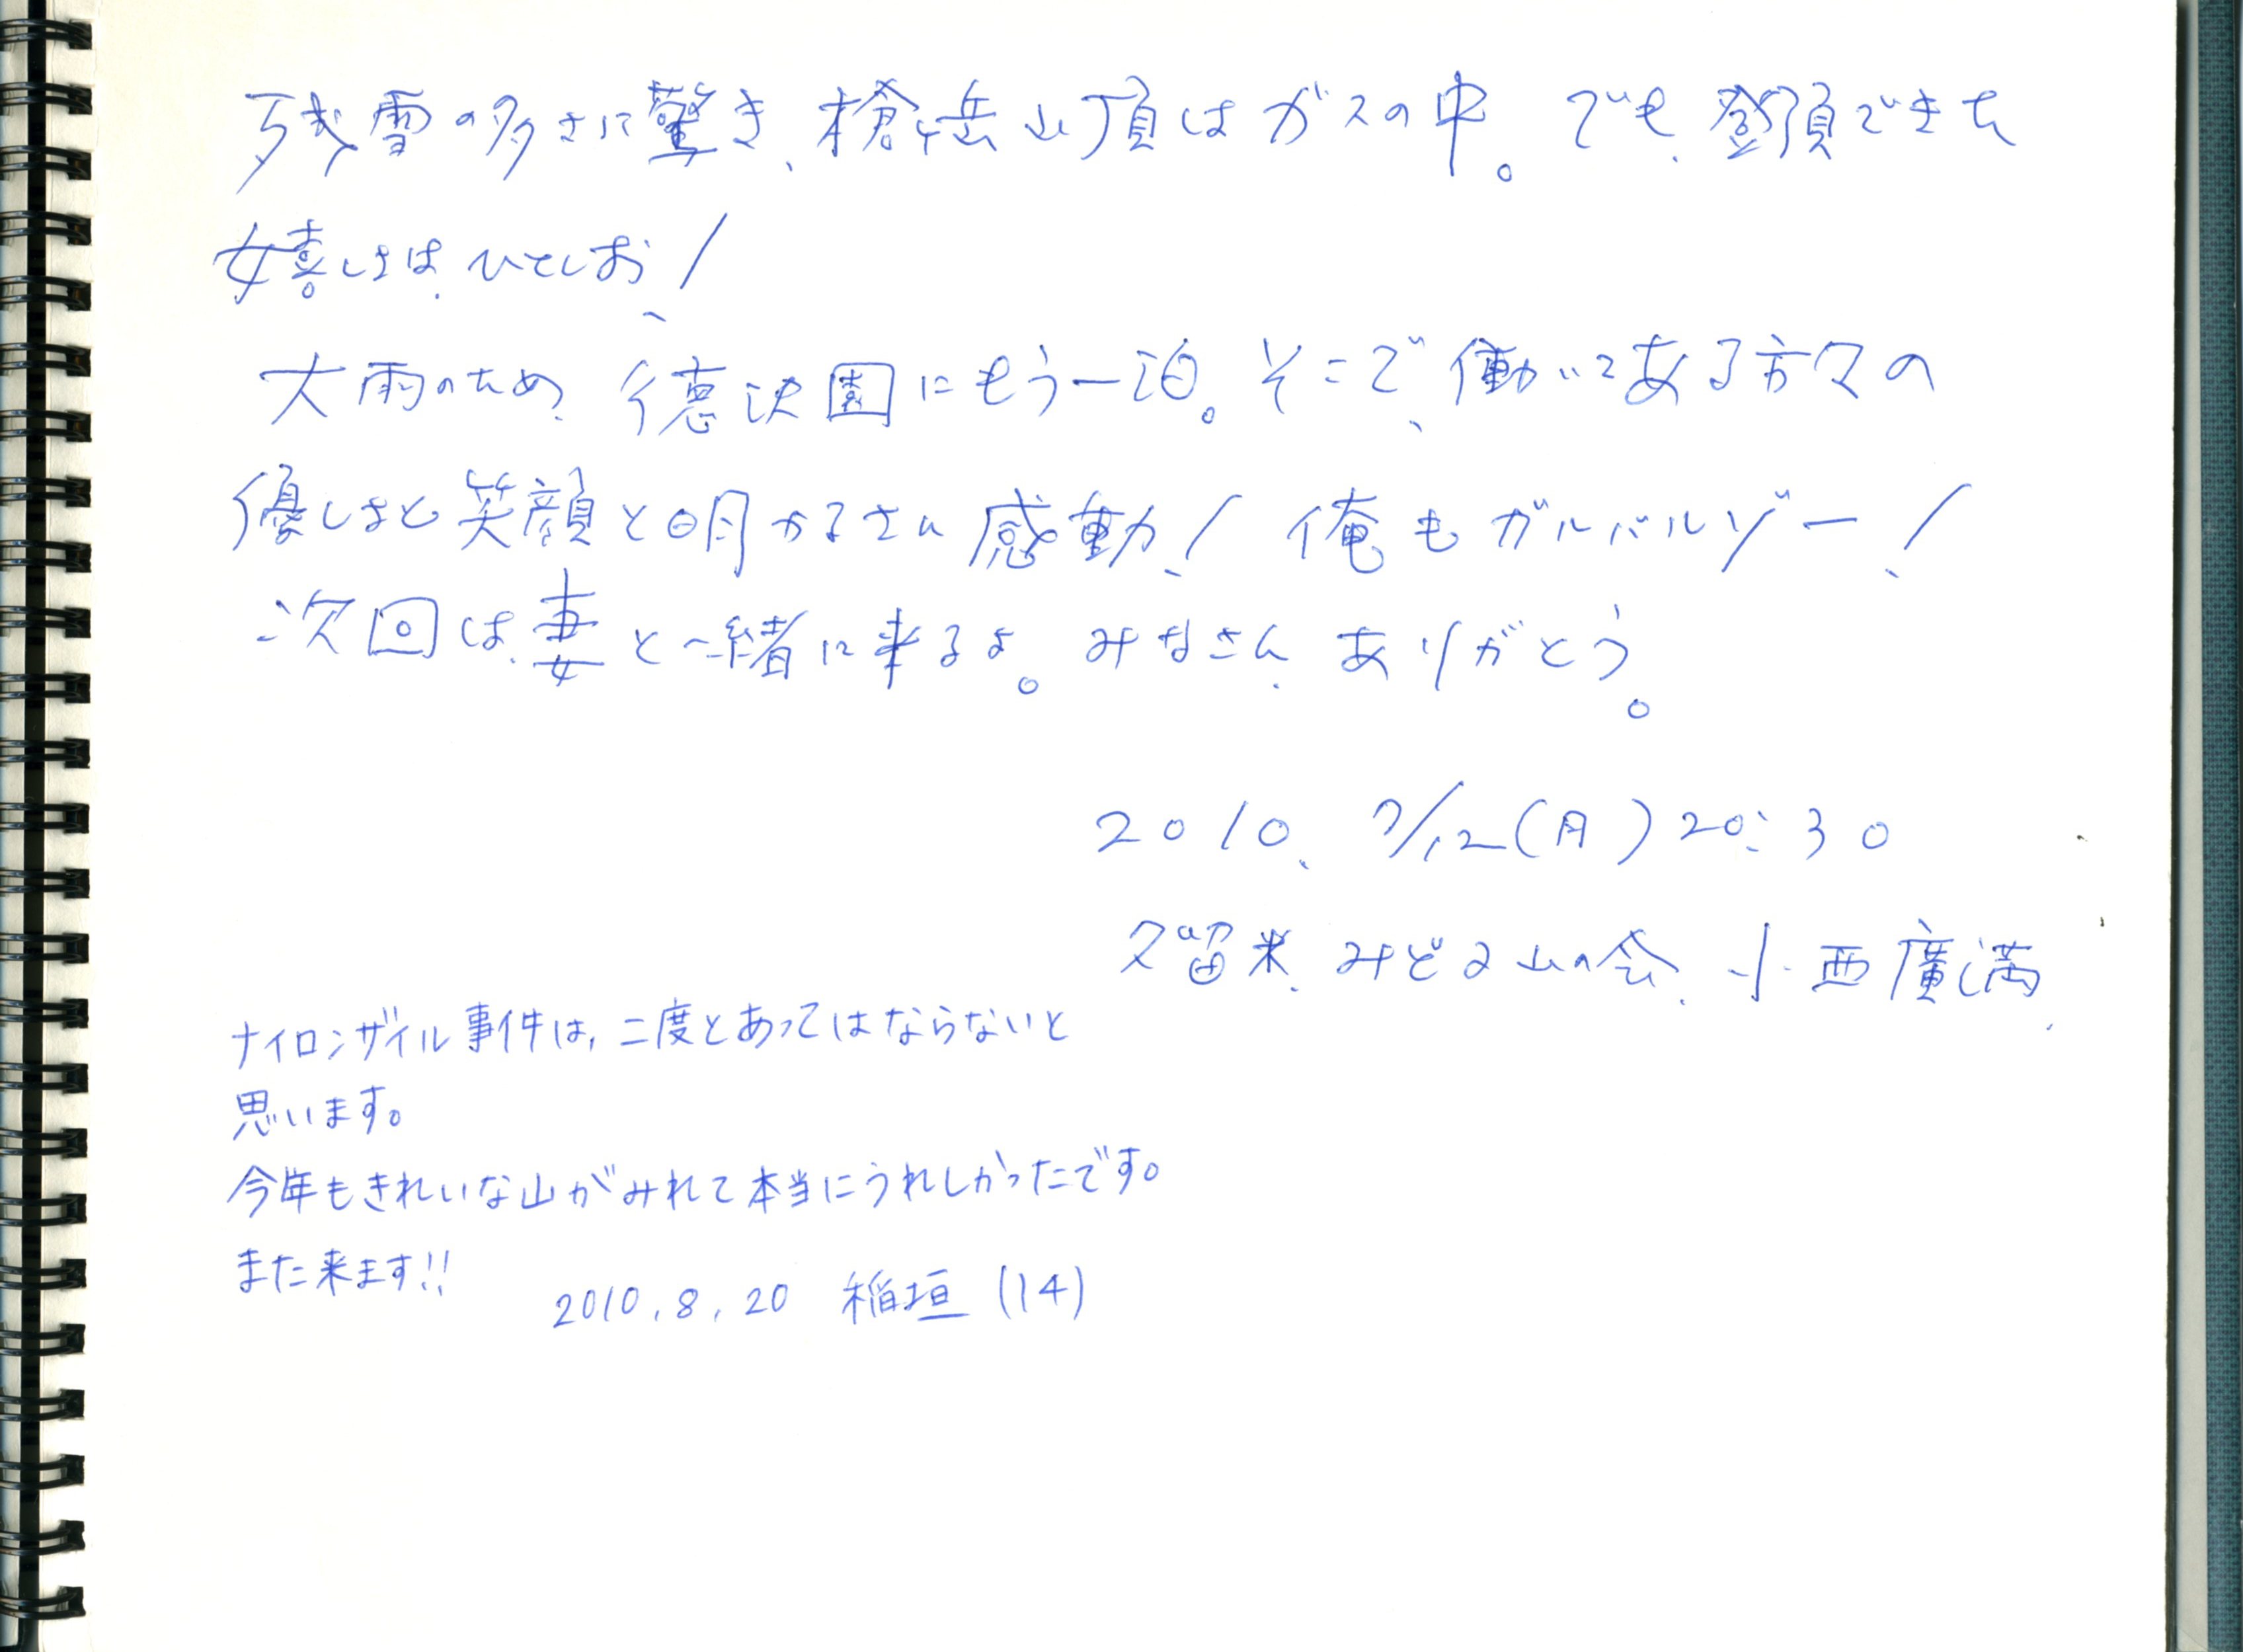 残雪の多さに驚き、槍ヶ岳山頂はガスの中。でも、登頂できた
嬉しさは、ひとしお!
大雨のため、徳沢園にもう一泊。そこで、働いてある方々の
優しさと笑顔と明かるさに感動!俺もガルバルゾー!
次回は、妻と一緒に来るよ。みなさん、ありがとう。
2010、7/12(月)20:30
久留米、みどり山の会、小西廣満、
ナイロンザイル事件は、二度とあってはならないと
思います。
今年もきれいな山がみれて本当にうれしかったです。
また来ます!!
2010.8.20 稲垣(14)